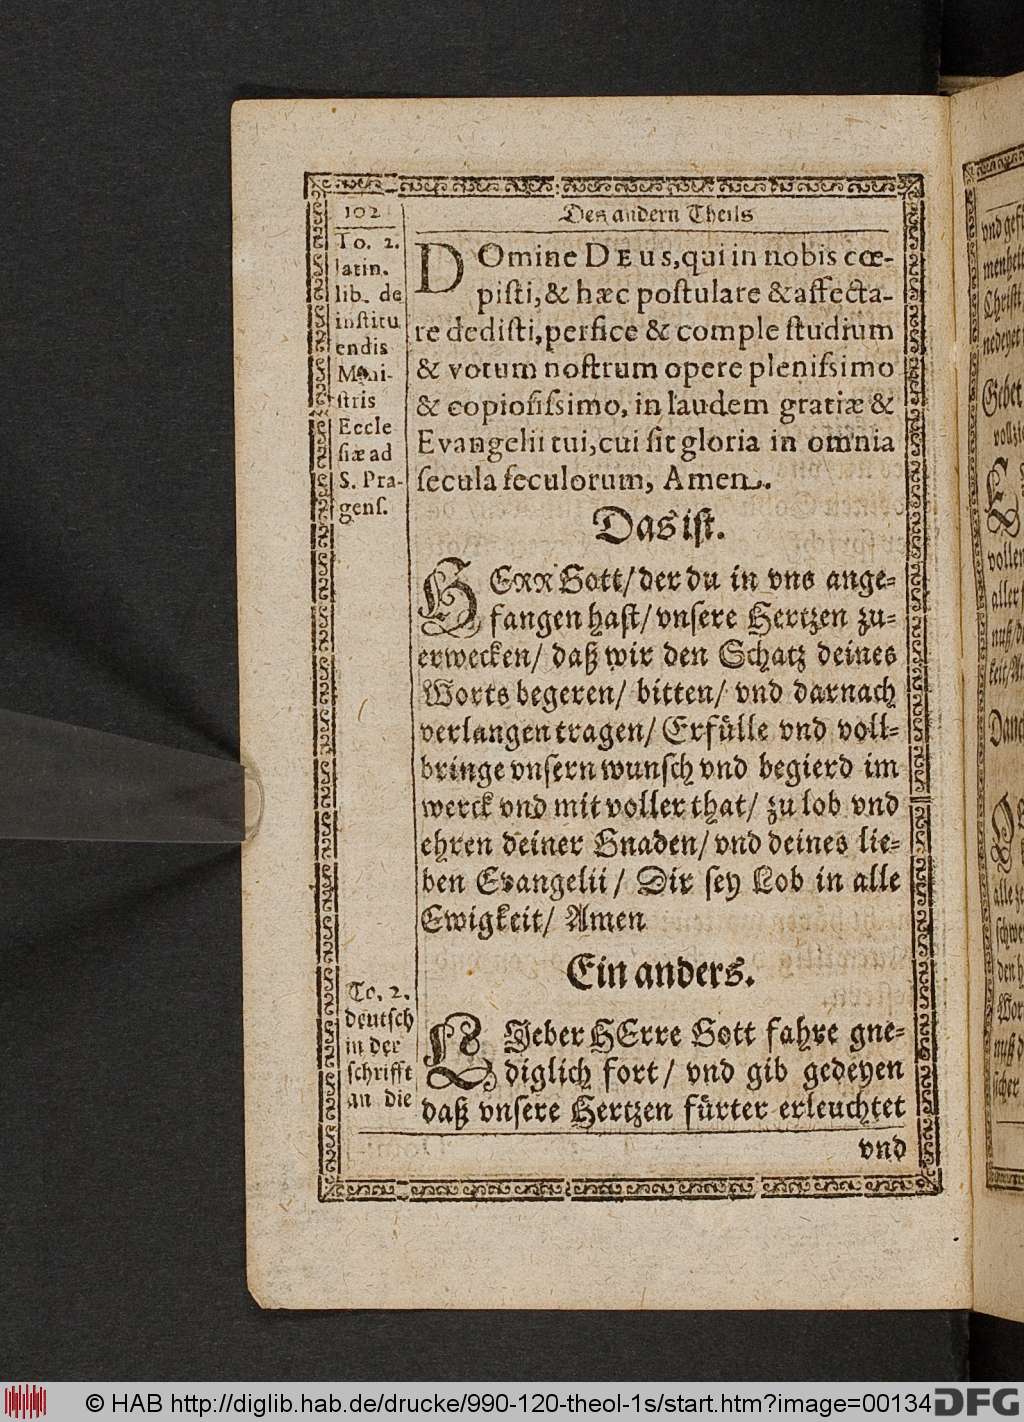 102
Des andern Theils
To. 2.
latin.
lib. de
institu
endis
Mini-
stris
Eccle
siæ ad
S. Pra-
gens.
DOmine DEus, qui in nobis cœ-
pisti, & hæc postulare & affecta-
re dedisti, perfice & comple studium
& votum nostrum opere plenissimo
& copiosissimo, in laudem gratiæ &
Evangelii tui, cui sit gloria in omnia
secula seculorum, Amen.
Das ist.
HERR Gott/ der du in vns ange-
fangen hast/ vnsere Hertzen zu-
erwecken/ daß wir den Schatz deines
Worts begeren/ bitten/ vnd darnach
verlangen tragen/ Erfülle vnd voll-
bringe vnsern wunsch vnd begierd im
werck vnd mit voller that/ zu lob vnd
ehren deiner Gnaden/ vnd deines lie-
ben Evangelii/ Dir sey Lob in alle
Ewigkeit/ Amen
Ein anders.
To. 2.
deutsch
in der
schrifft
an die
LIeber HErre Gott fahre gne-
diglich fort/ vnd gib gedeyen
daß vnsere Hertzen fürter erleuchtet
vnd
© HAB http://diglib.hab.de/drucke/990-120-theol-1s/start.htm?image=00134
DFG